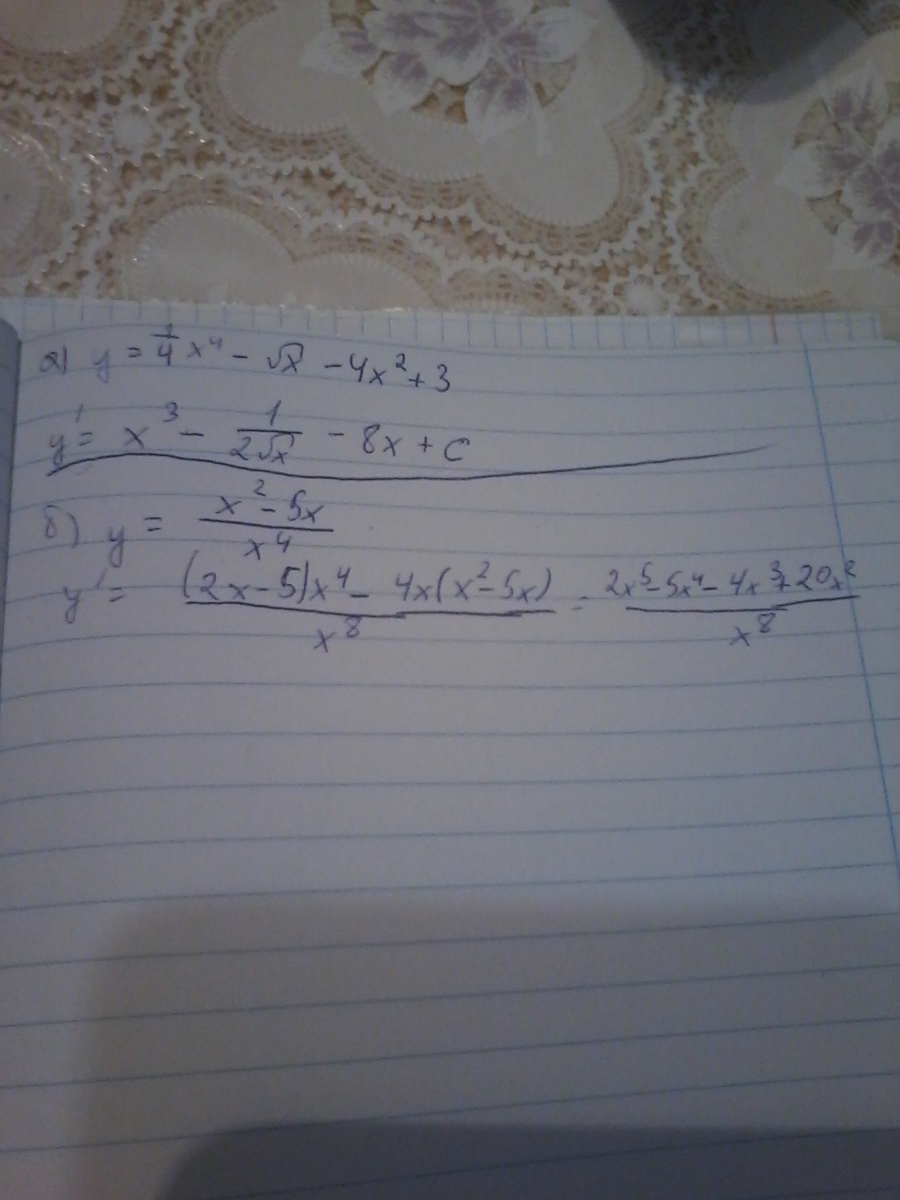 а) y = 1/4 x⁴ - √x - 4x² + 3
y' = x³ - 1/(2√x) - 8x + C
б) y = (x² - 5x)/x⁴
y' = ((2x-5)x⁴ - 4x(x²-5x))/x⁸ = (2x⁵-5x⁴-4x³+20x²)/x⁸